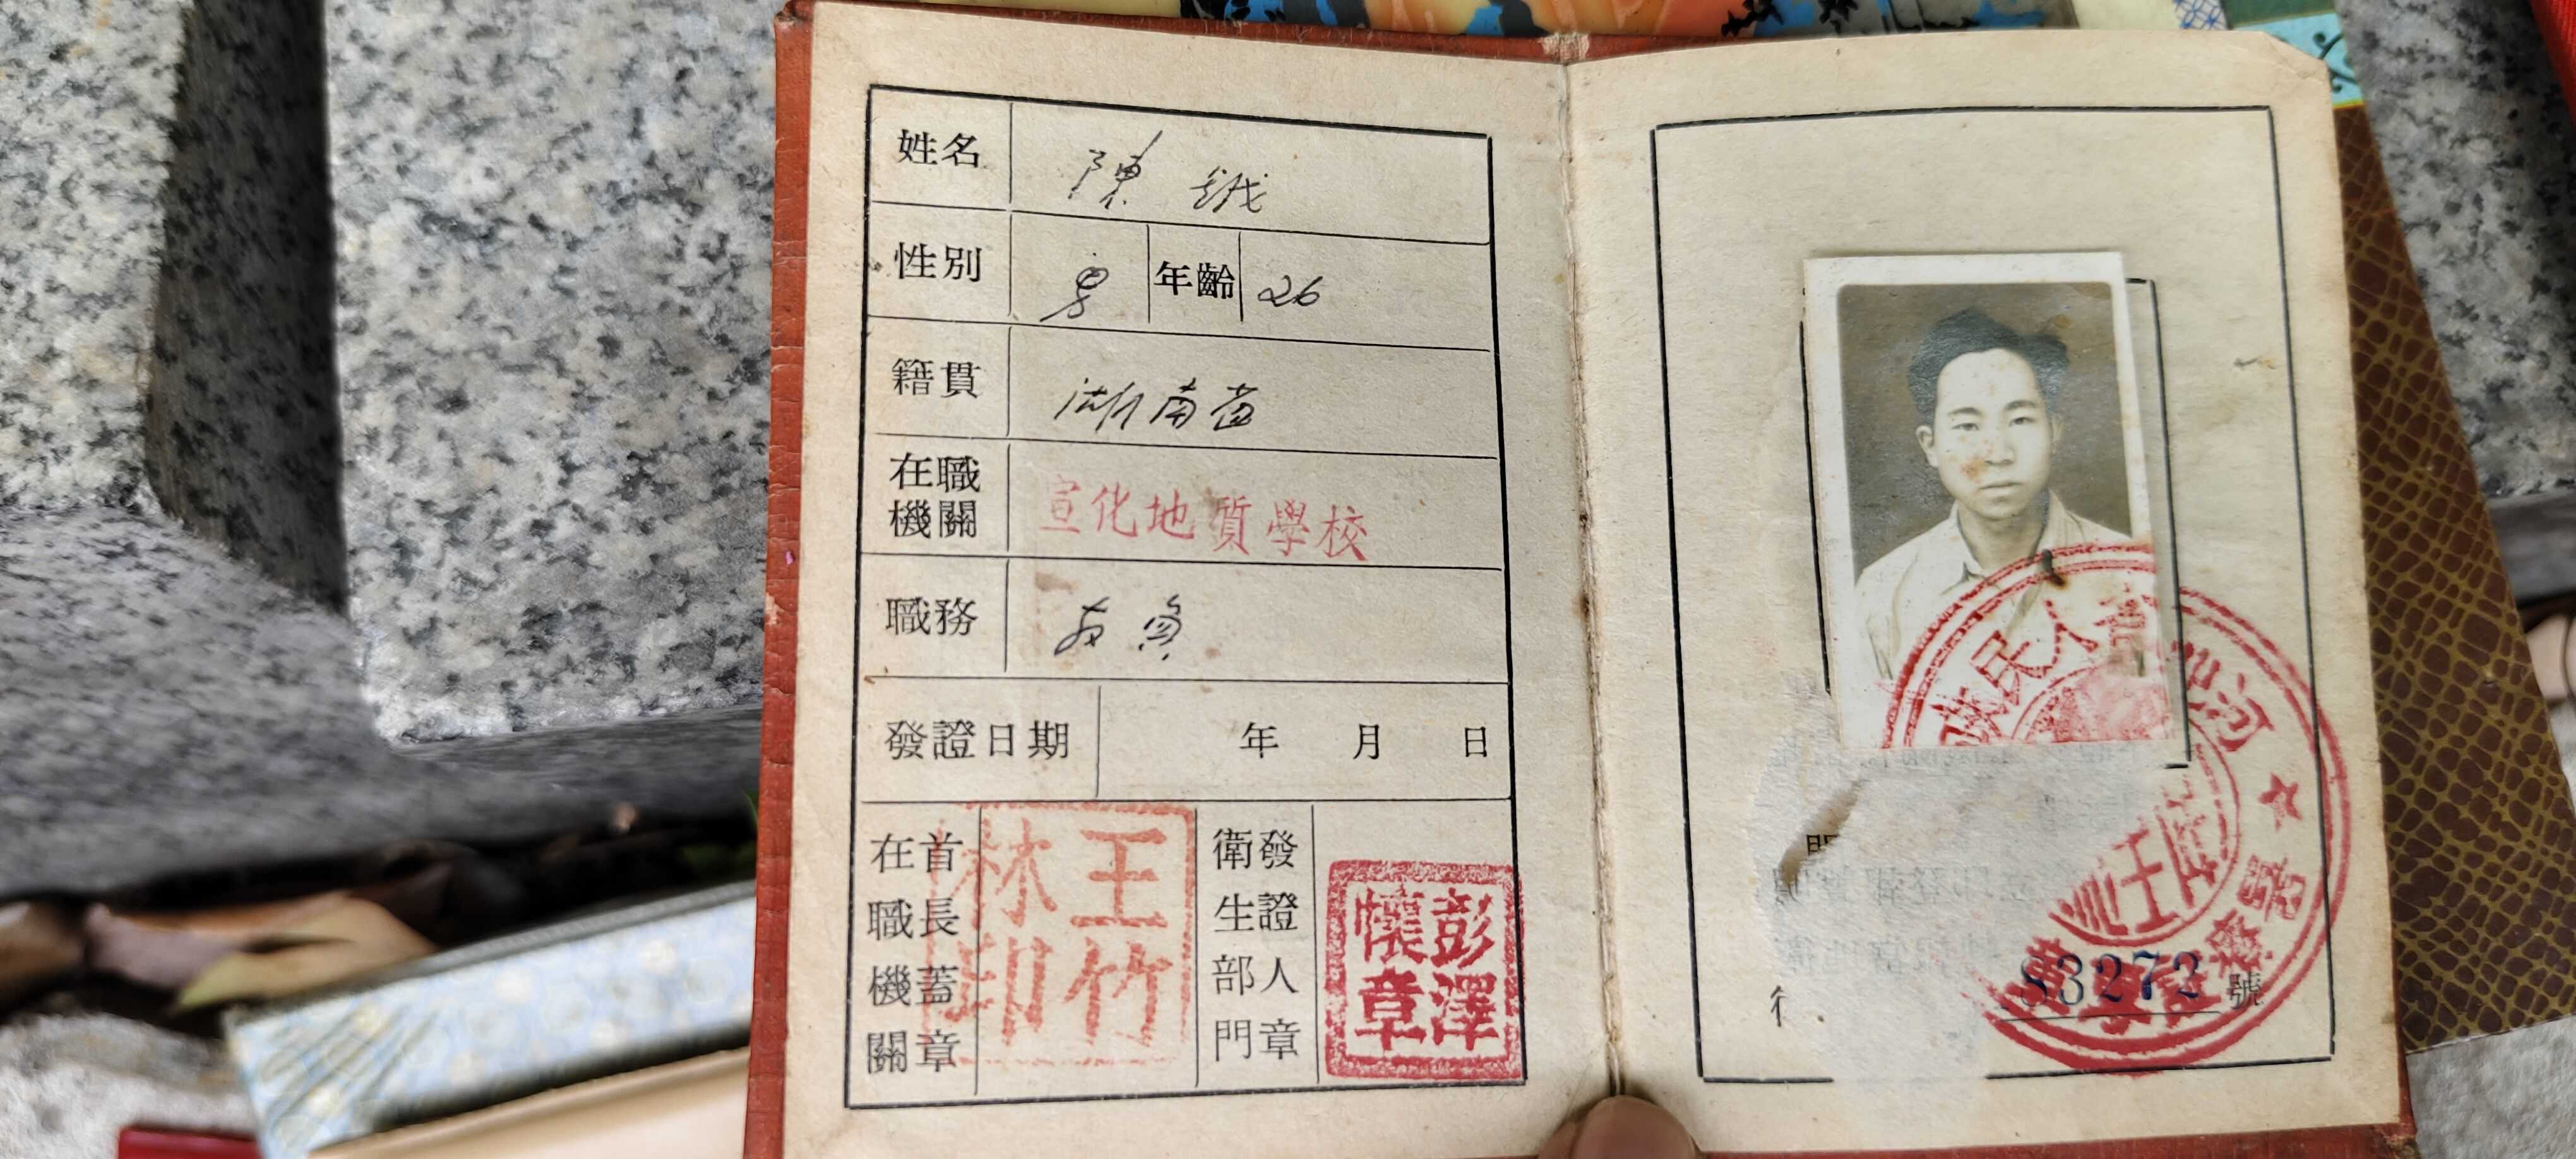 姓名 陳 鉞
性別 男 年齡 26
籍貫 湖南省
在職機關 宣化地質學校
職務 教員
發證日期 年 月 日
在職機關首長蓋章 王竹林印
衛生部門發證人章 彭澤懷章
83272 號